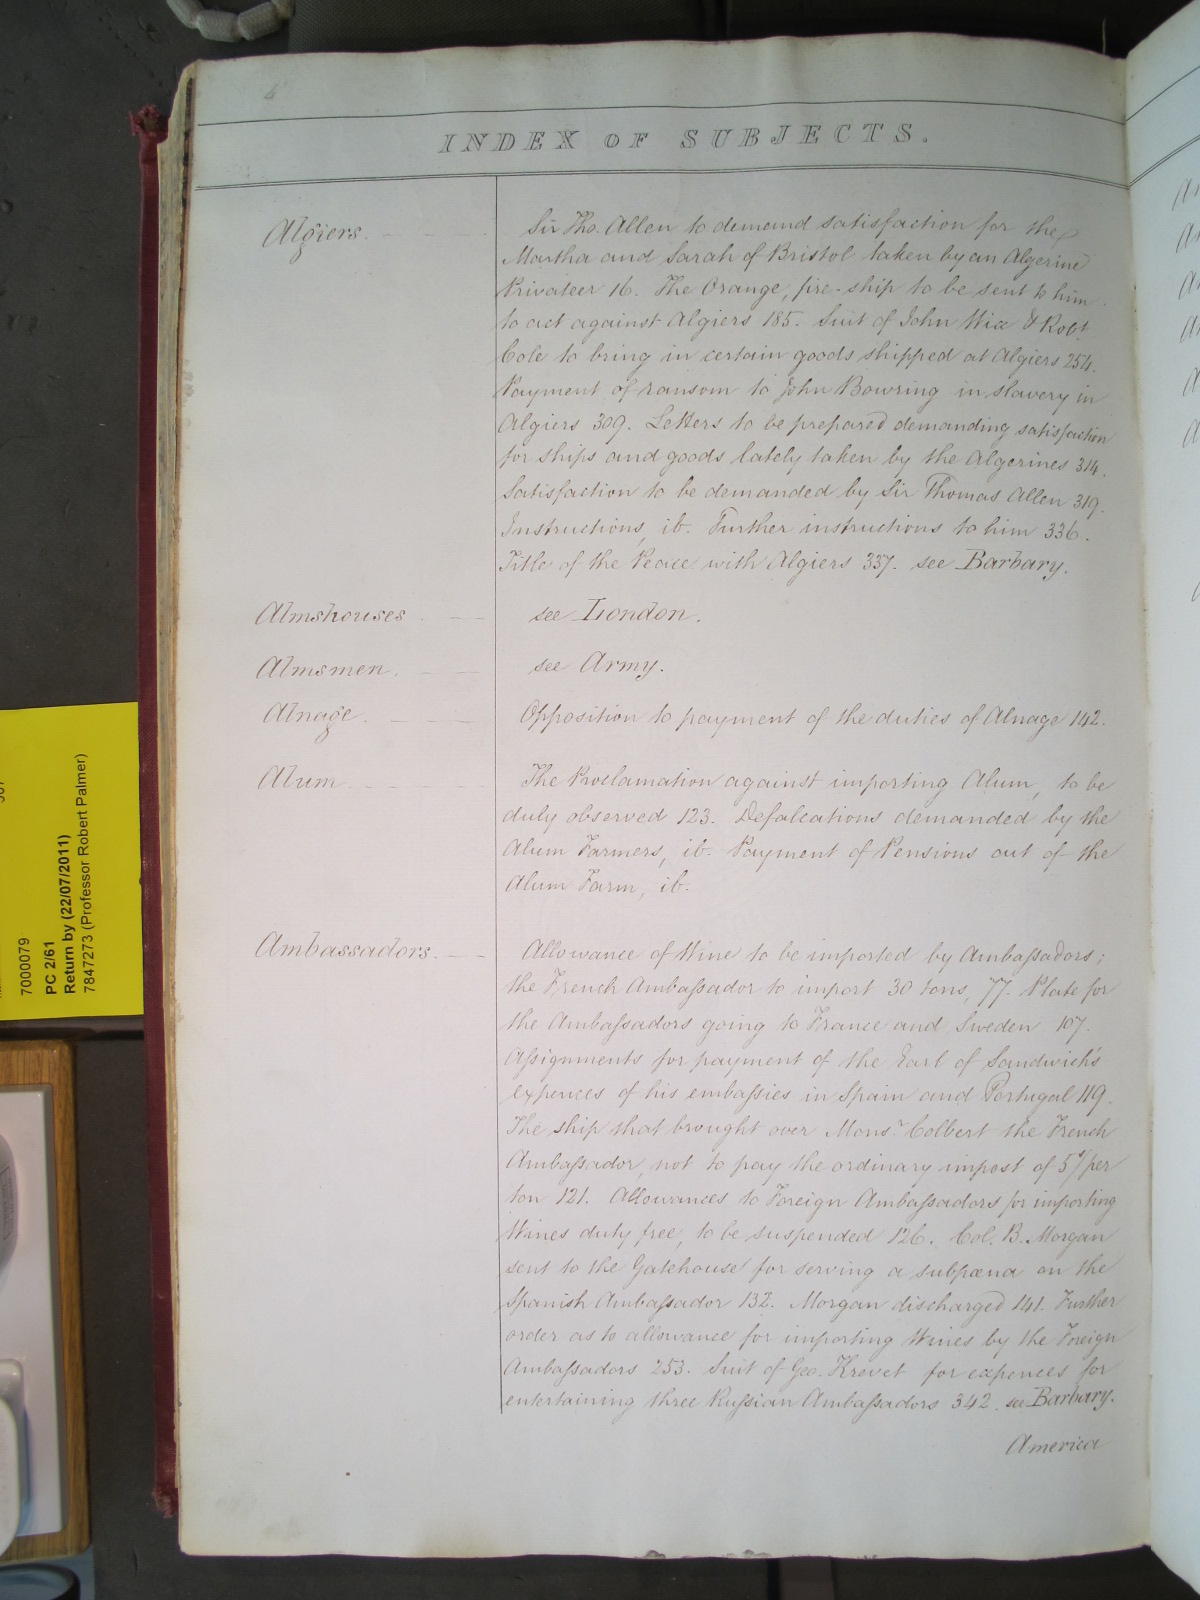 6
INDEX OF SUBJECTS.
Algiers.
Sir Tho. Allen to demand satisfaction for the
Martha and Sarah of Bristol taken by an Algerine
Privateer 16. The Orange, fire-ship to be sent to him
to act against Algiers 185. Suit of John Wix & Robt
Cole to bring in certain goods shipped at Algiers 254.
Payment of ransom to John Bowring in slavery in
Algiers 309. Letters to be prepared demanding satisfaction
for ships and goods lately taken by the Algerines 314.
Satisfaction to be demanded by Sir Thomas Allen 319.
Instructions, ib. Further instructions to him 336.
Title of the Peace with Algiers 337. see Barbary.
Almshouses
see London.
Almsmen.
see Army.
Alnage.
Opposition to payment of the duties of Alnage 142.
Alum.
The Proclamation against importing Alum, to be
duly observed 123. Defalcations demanded by the
Alum Farmers, ib. Payment of Pensions out of the
Alum Farm, ib.
Ambassadors.
Allowance of Wine to be imported by Ambaſsadors;
the French Ambaſsador to import 30 tons, 77. Plate for
the Ambaſsadors going to France and Sweden 107.
Aſsignments for payment of the Earl of Sandwich's
expences of his embaſsies in Spain and Portugal 119.
The ship that brought over Monsr. Colbert the French
Ambaſsador, not to pay the ordinary impost of 5s/ per
ton 121. Allowances to Foreign Ambaſsadors for importing
Wines duty free, to be suspended 126. Col. B. Morgan
sent to the Gatehouse for serving a subpœna on the
Spanish Ambaſsador 132. Morgan discharged 141. Further
order as to allowance for importing Wines by the Foreign
Ambaſsadors 253. Suit of Geo. Krevet for expences for
entertaining three Ruſsian Ambaſsadors 342. see Barbary.
America
7000079
PC 2/61
Return by (22/07/2011)
7847273 (Professor Robert Palmer)